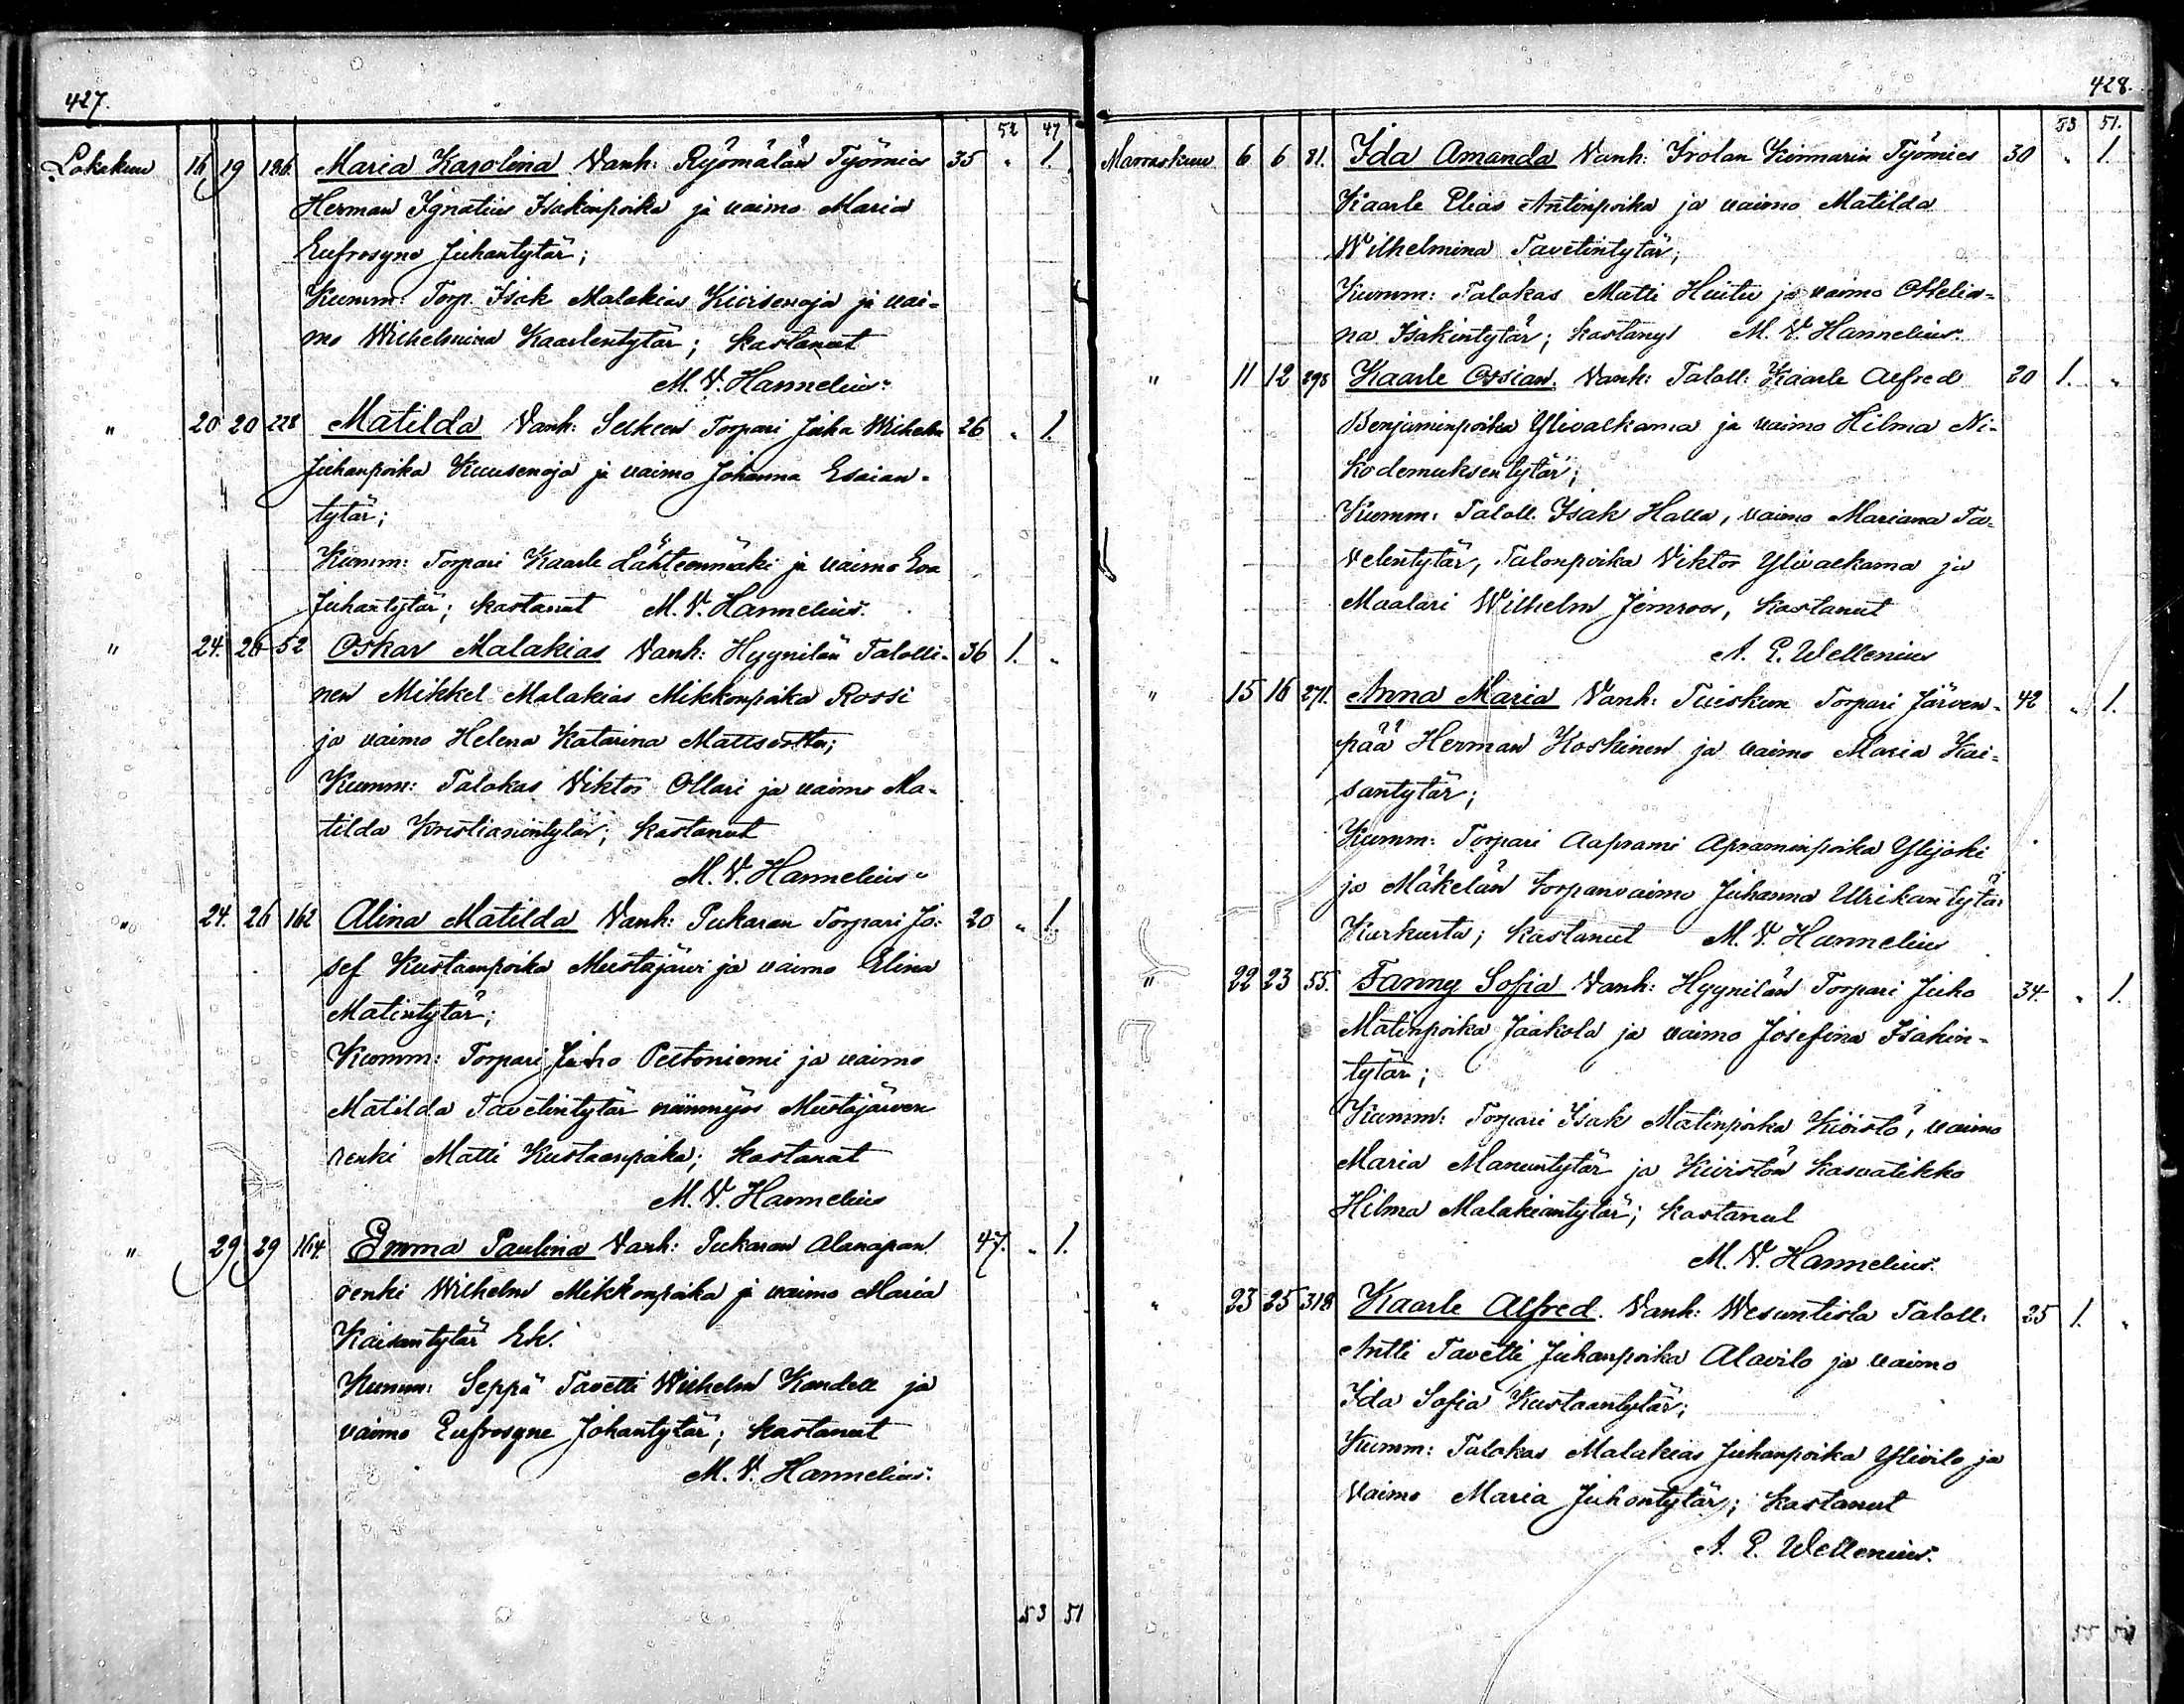 427.
52 47
Lokakuu 16 19 186. Maria Karolina Vanh: Ryömälän Työmies 35 " 1.
Herman Ignatius Isakinpoika ja vaimo Maria
Eufrosyne Juhantytär;
Kumm: Torp. Isak Malakias Kiviseroja ja vai-
mo Wilhelmina Kaarlentytär; kastanut
M. V. Hannelius.
" 20 20 228 Matilda Vanh: Selkeen Torpari Juha Wilhelm 26 " 1.
Juhanpoika Kuusenoja ja vaimo Johanna Esaian-
tytär;
Kumm: Torpari Kaarle Lähteenmäki ja vaimo Eva
Juhantytär; kastanut M. V. Hannelius.
" 24. 26 52 Oskar Malakias Vanh: Hyynilän Talolli- 36 1. "
nen Mikkel Malakias Mikkonpoika Rossi
ja vaimo Helena Katarina
Kumm: Talokas Viktor Ollari ja vaimo Ma-
tilda Kristianintytär; kastanut
M. V. Hannelius.
" 24. 26 162 Alina Matilda Vanh: Pukaran Torpari Jo- 20 " 1.
sef Kustaanpoika Mustajärvi ja vaimo Elina
Matintytär;
Kumm: Torpari Juho Peltoniemi ja vaimo
Matilda Tavetintytär niinmyös Mustajärven
renki Matti Kustaanpoika; kastanut
M. V. Hannelius
" 29 29 164. Emma Paulina Vanh: Pukaran Alanapan 47. " 1.
renki Wilhelm Mikkonpoika ja vaimo Maria
Kaisantytär Ek.
Kumm: Seppä Tavetti Wilhelm Kandell ja
vaimo Eufrosyne Johantytär; kastanut
M. V. Hannelius.
53 51
428.
53 51.
Marraskuu 6 6 81. Ida Amanda Vanh: Irolan Kinnarin Työmies 30 " 1.
Kaarle Elias Antinpoika ja vaimo Matilda
Wilhelmina Tavetintytär;
Kumm: Talokas Matti Huitu ja vaimo Ottelia-
na Isakintytär; kastanut M. V. Hannelius.
" 11 12 298 Kaarle Ossian. Vanh: Taloll: Kaarle Alfred 20 1. "
Benjaminpoika Ylivalkama ja vaimo Hilma Ni-
kodemuksentytär;
Kumm: Taloll. Isak Halla, vaimo Mariana Ta-
velentytär, Talonpoika Viktor Ylivalkama ja
Maalari Wilhelm Jernroos, kastanut
A. E. Wellenius
" 15 16 271. Anna Maria Vanh: Tuiskun Torpari Järven- 42 " 1.
pää Herman Koskinen ja vaimo Maria Kai-
santytär;
Kumm: Torpari Aaprami Apraminpoika Ylijoki
ja Mäkelän torpanvaimo Juhanna Ulrikantytär
Kurkusta; kastanut M. V. Hannelius
" 22 23 55. Fanny Sofia Vanh: Hyynilän Torpari Juho 34 " 1.
Matinpoika Jaakola ja vaimo Josefina Isakin-
tytär;
Kumm: Torpari Isak Matinpoika Kivistö, vaimo
Maria Manuntytär ja Kivistön kasvatikko
Hilma Malakiantytär; kastanut
M. V. Hannelius.
" 23 25 318 Kaarle Alfred. Vanh: Wesuntista Taloll: 25 1. "
Antti Tavetti Juhanpoika Alavilo ja vaimo
Ida Sofia Kustaantytär;
Kumm: Talokas Malakias Juhanpoika Ylivilo ja
Vaimo Maria Juhontytär; kastanut
A. E. Wellenius.